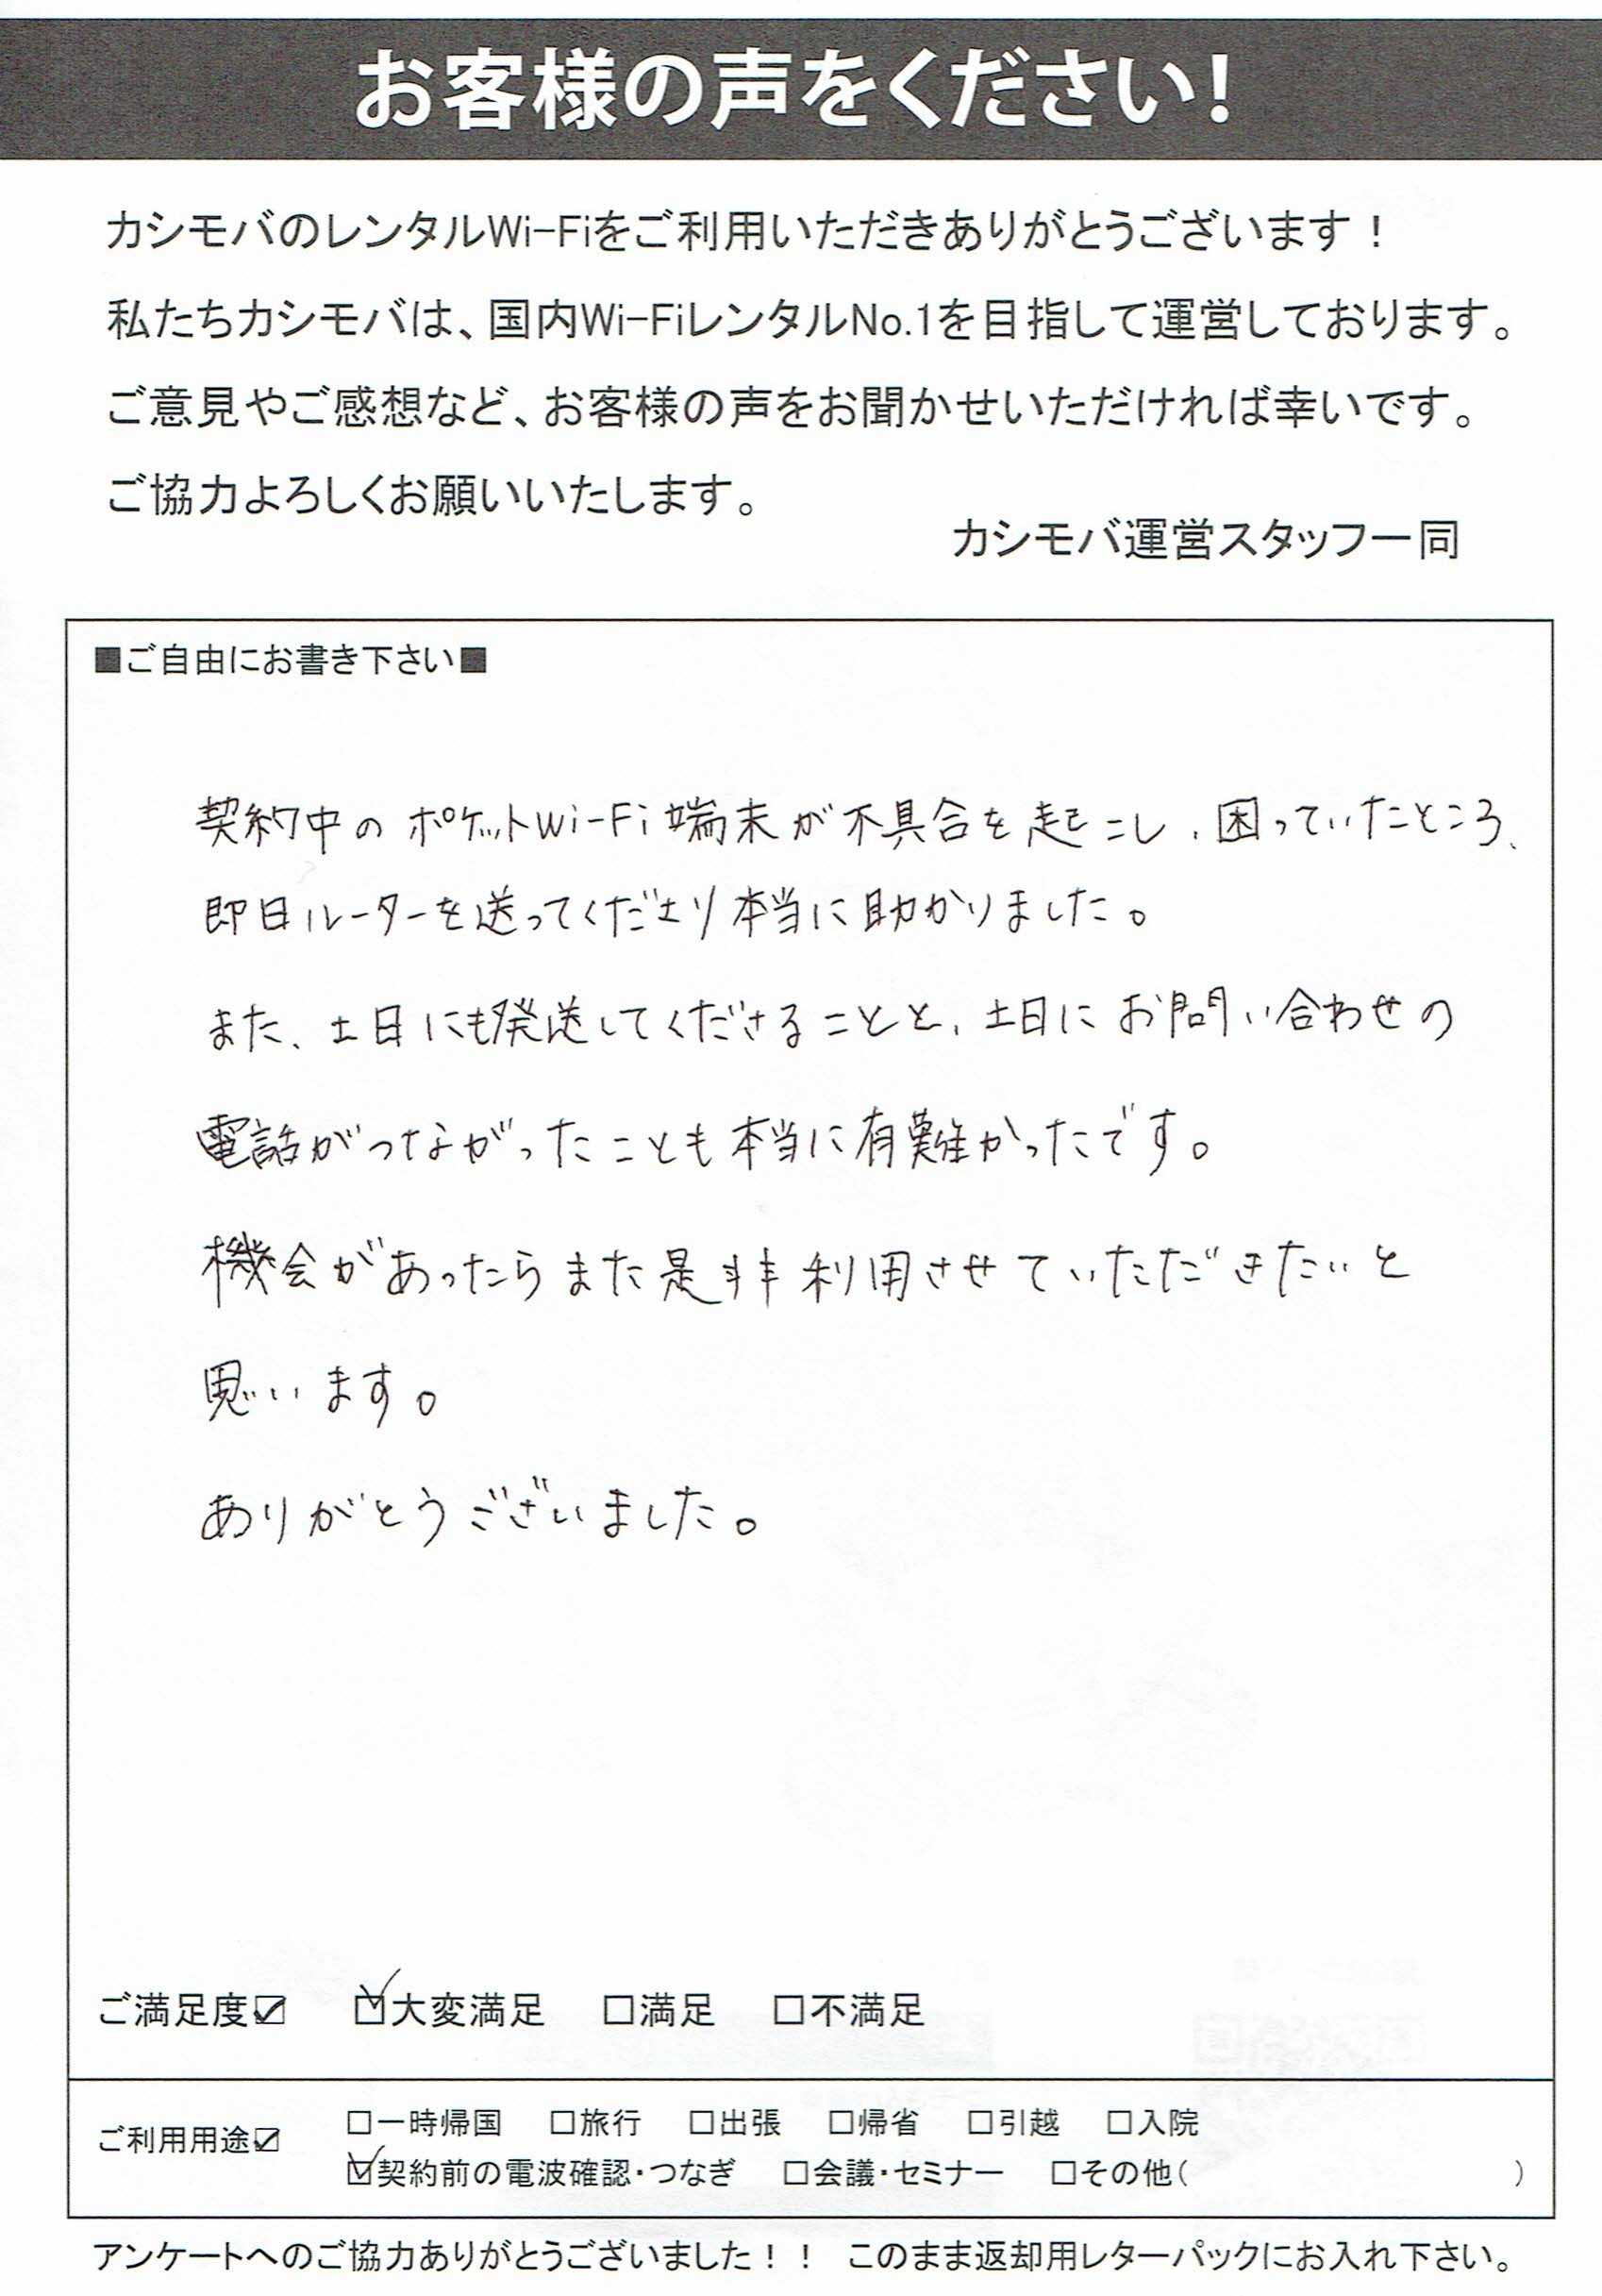 お客様の声をください！
カシモバのレンタルWi-Fiをご利用いただきありがとうございます！
私たちカシモバは、国内Wi-FiレンタルNo.1を目指して運営しております。
ご意見やご感想など、お客様の声をお聞かせいただければ幸いです。
ご協力よろしくお願いいたします。
カシモバ運営スタッフ一同
■ご自由にお書き下さい■
契約中のポケットWi-Fi端末が不具合を起こし、困っていたところ、
即日ルーターを送ってくださり本当に助かりました。
また、土日にも発送してくださることと、土日にお問い合わせの
電話がつながったことも本当に有難かったです。
機会があったらまた是非利用させていただきたいと
思います。
ありがとうございました。
ご満足度☑ ☑大変満足 □満足 □不満足
ご利用用途☑ □一時帰国 □旅行 □出張 □帰省 □引越 □入院
☑契約前の電波確認・つなぎ □会議・セミナー □その他( )
アンケートへのご協力ありがとうございました！！ このまま返却用レターパックにお入れ下さい。